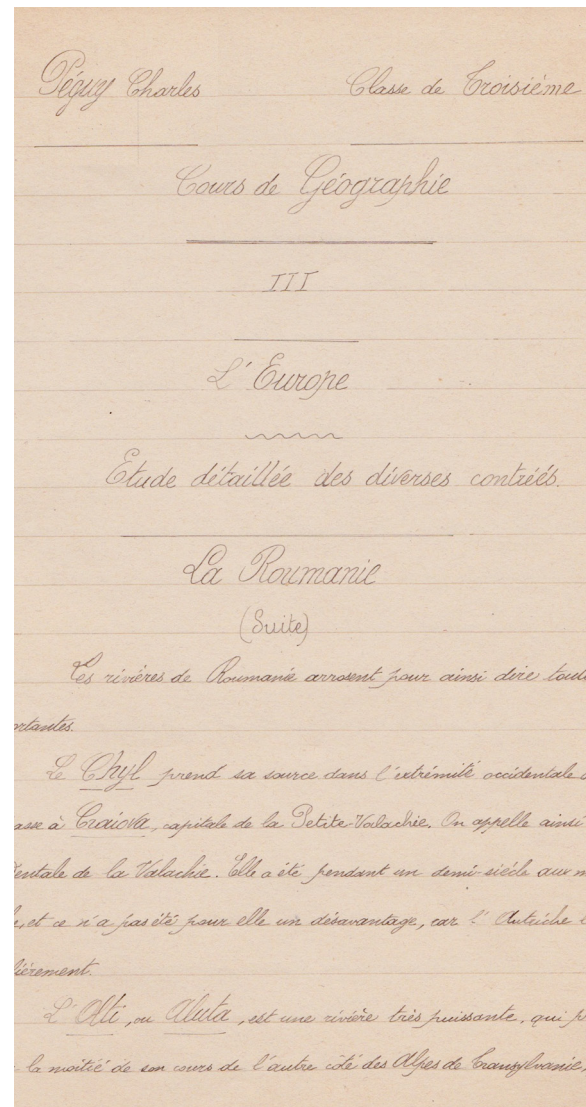 Péguy Charles Classe de Troisième
Cours de Géographie
III
L'Europe
Etude détaillée des diverses contrées.
La Roumanie
(Suite)
Les rivières de Roumanie arrosent pour ainsi dire tout
ortantes.
Le Chyl prend sa source dans l'extrémité occidentale d
asse à Craiova, capitale de la Petite-Valachie. On appelle ainsi
dentale de la Valachie. Elle a été pendant un demi-siècle aux m
e, et ce n'a pas été pour elle un désavantage, car l'Autriche l
lièrement.
L'Olti, ou Aluta, est une rivière très puissante, qui p
la moitié de son cours de l'autre côté des Alpes de Transylvanie,